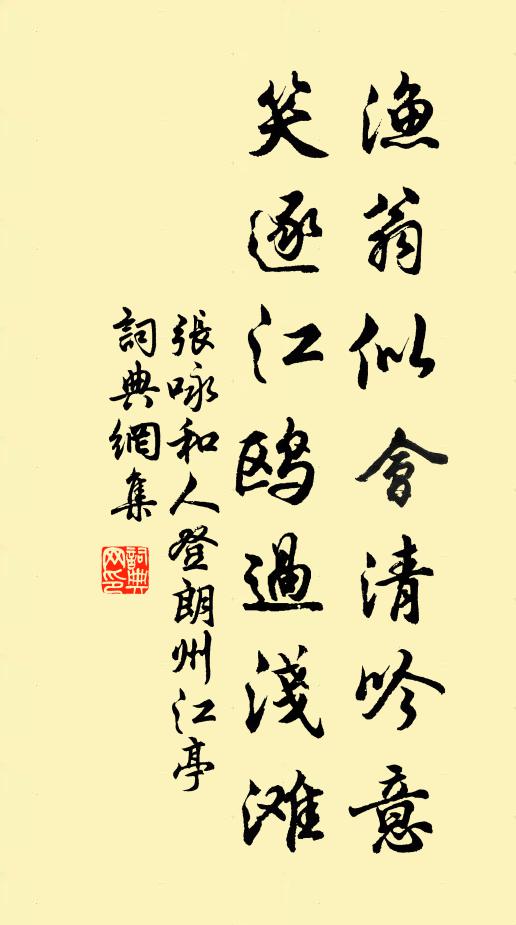 漁翁似會清吟意
笑逐江鸥過淺滩
張咏和人登朗州江亭
詞典網集
詞典网印